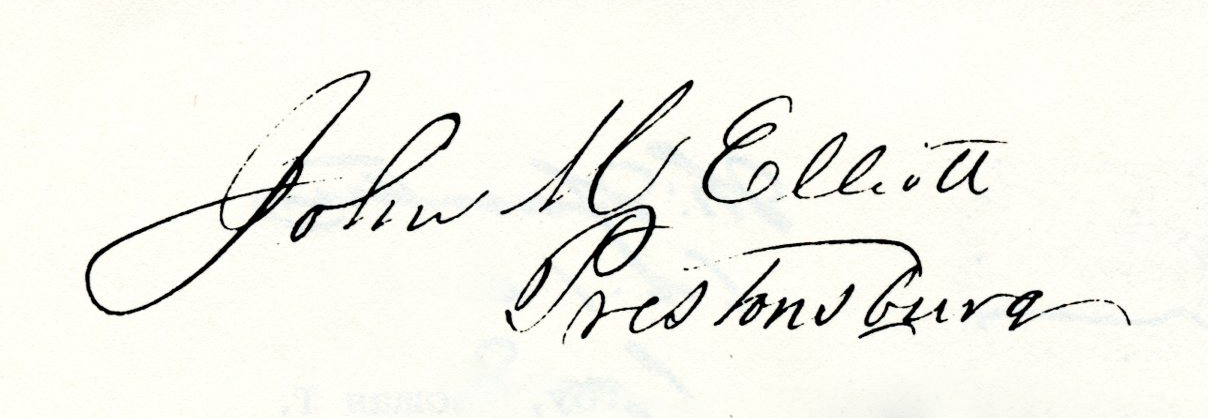 John M Elliott
Prestonsburg